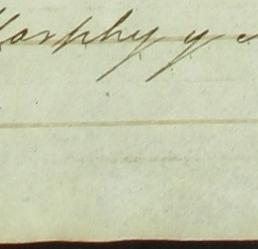 Morphy y